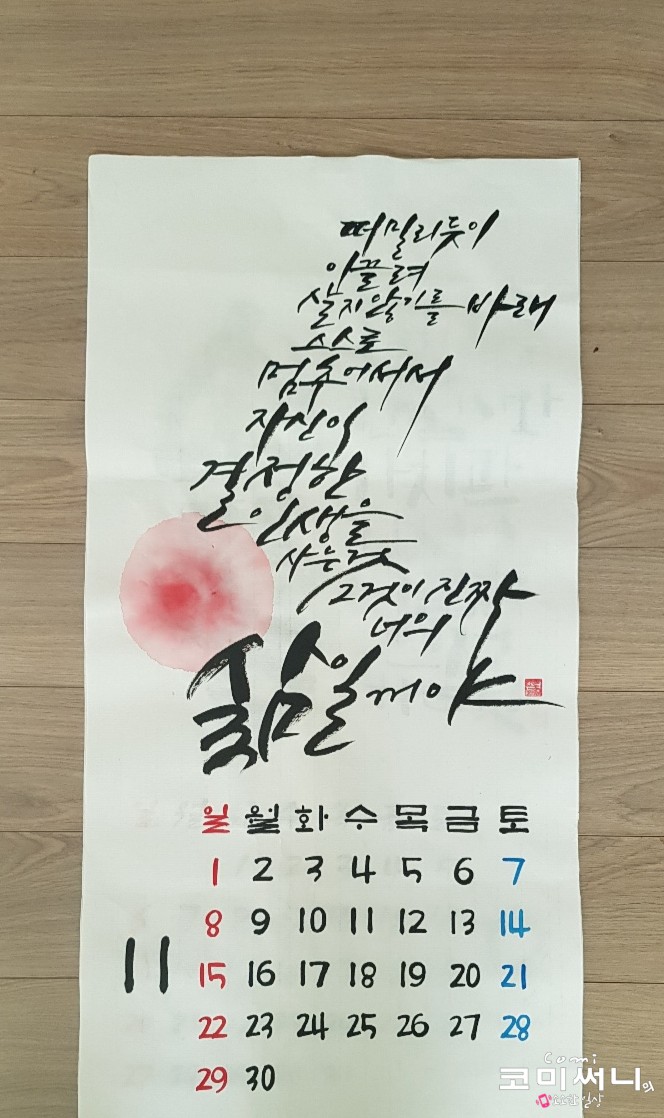 떠밀리듯이
이끌려
살지않기를 바래
스스로
멈추어서서
자신이
결정한
인생을
사는것
그것이 진짜
너의
삶일꺼야
일 월 화 수 목 금 토
1 2 3 4 5 6 7
8 9 10 11 12 13 14
11
15 16 17 18 19 20 21
22 23 24 25 26 27 28
29 30
Comi
코미써니의
소소한일상